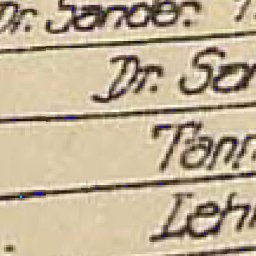 Dr. Sander.
Dr. San
Tann
Lehr